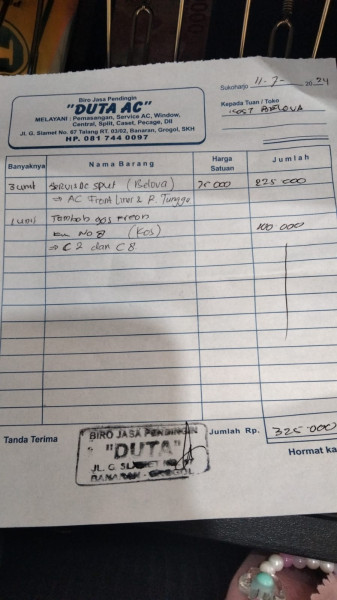 Biro Jasa Pendingin
"DUTA AC"
MELAYANI : Pemasangan, Service AC, Window,
Central, Split, Caset, Pecage, Dll
Jl. G. Slamet No. 67 Talang RT. 03/02, Banaran, Grogol, SKH
HP. 081 744 0097
Sukoharjo 11-7- 2024
Kepada Tuan / Toko
Banyaknya Nama Barang Harga Satuan Jumlah
3 unit Service AC split (Belova) 75 000 225 000
⇒ AC Front Liner & R. Tunggu
1 unit Tambah gas freon
No 8 (Kos) 100.000
⇒ C 2 dan C 8
Tanda Terima
Jumlah Rp. 325.000
BIRO JASA PENDINGIN
"DUTA"
JL. G
BANARAN - GROGOL
Hormat ka